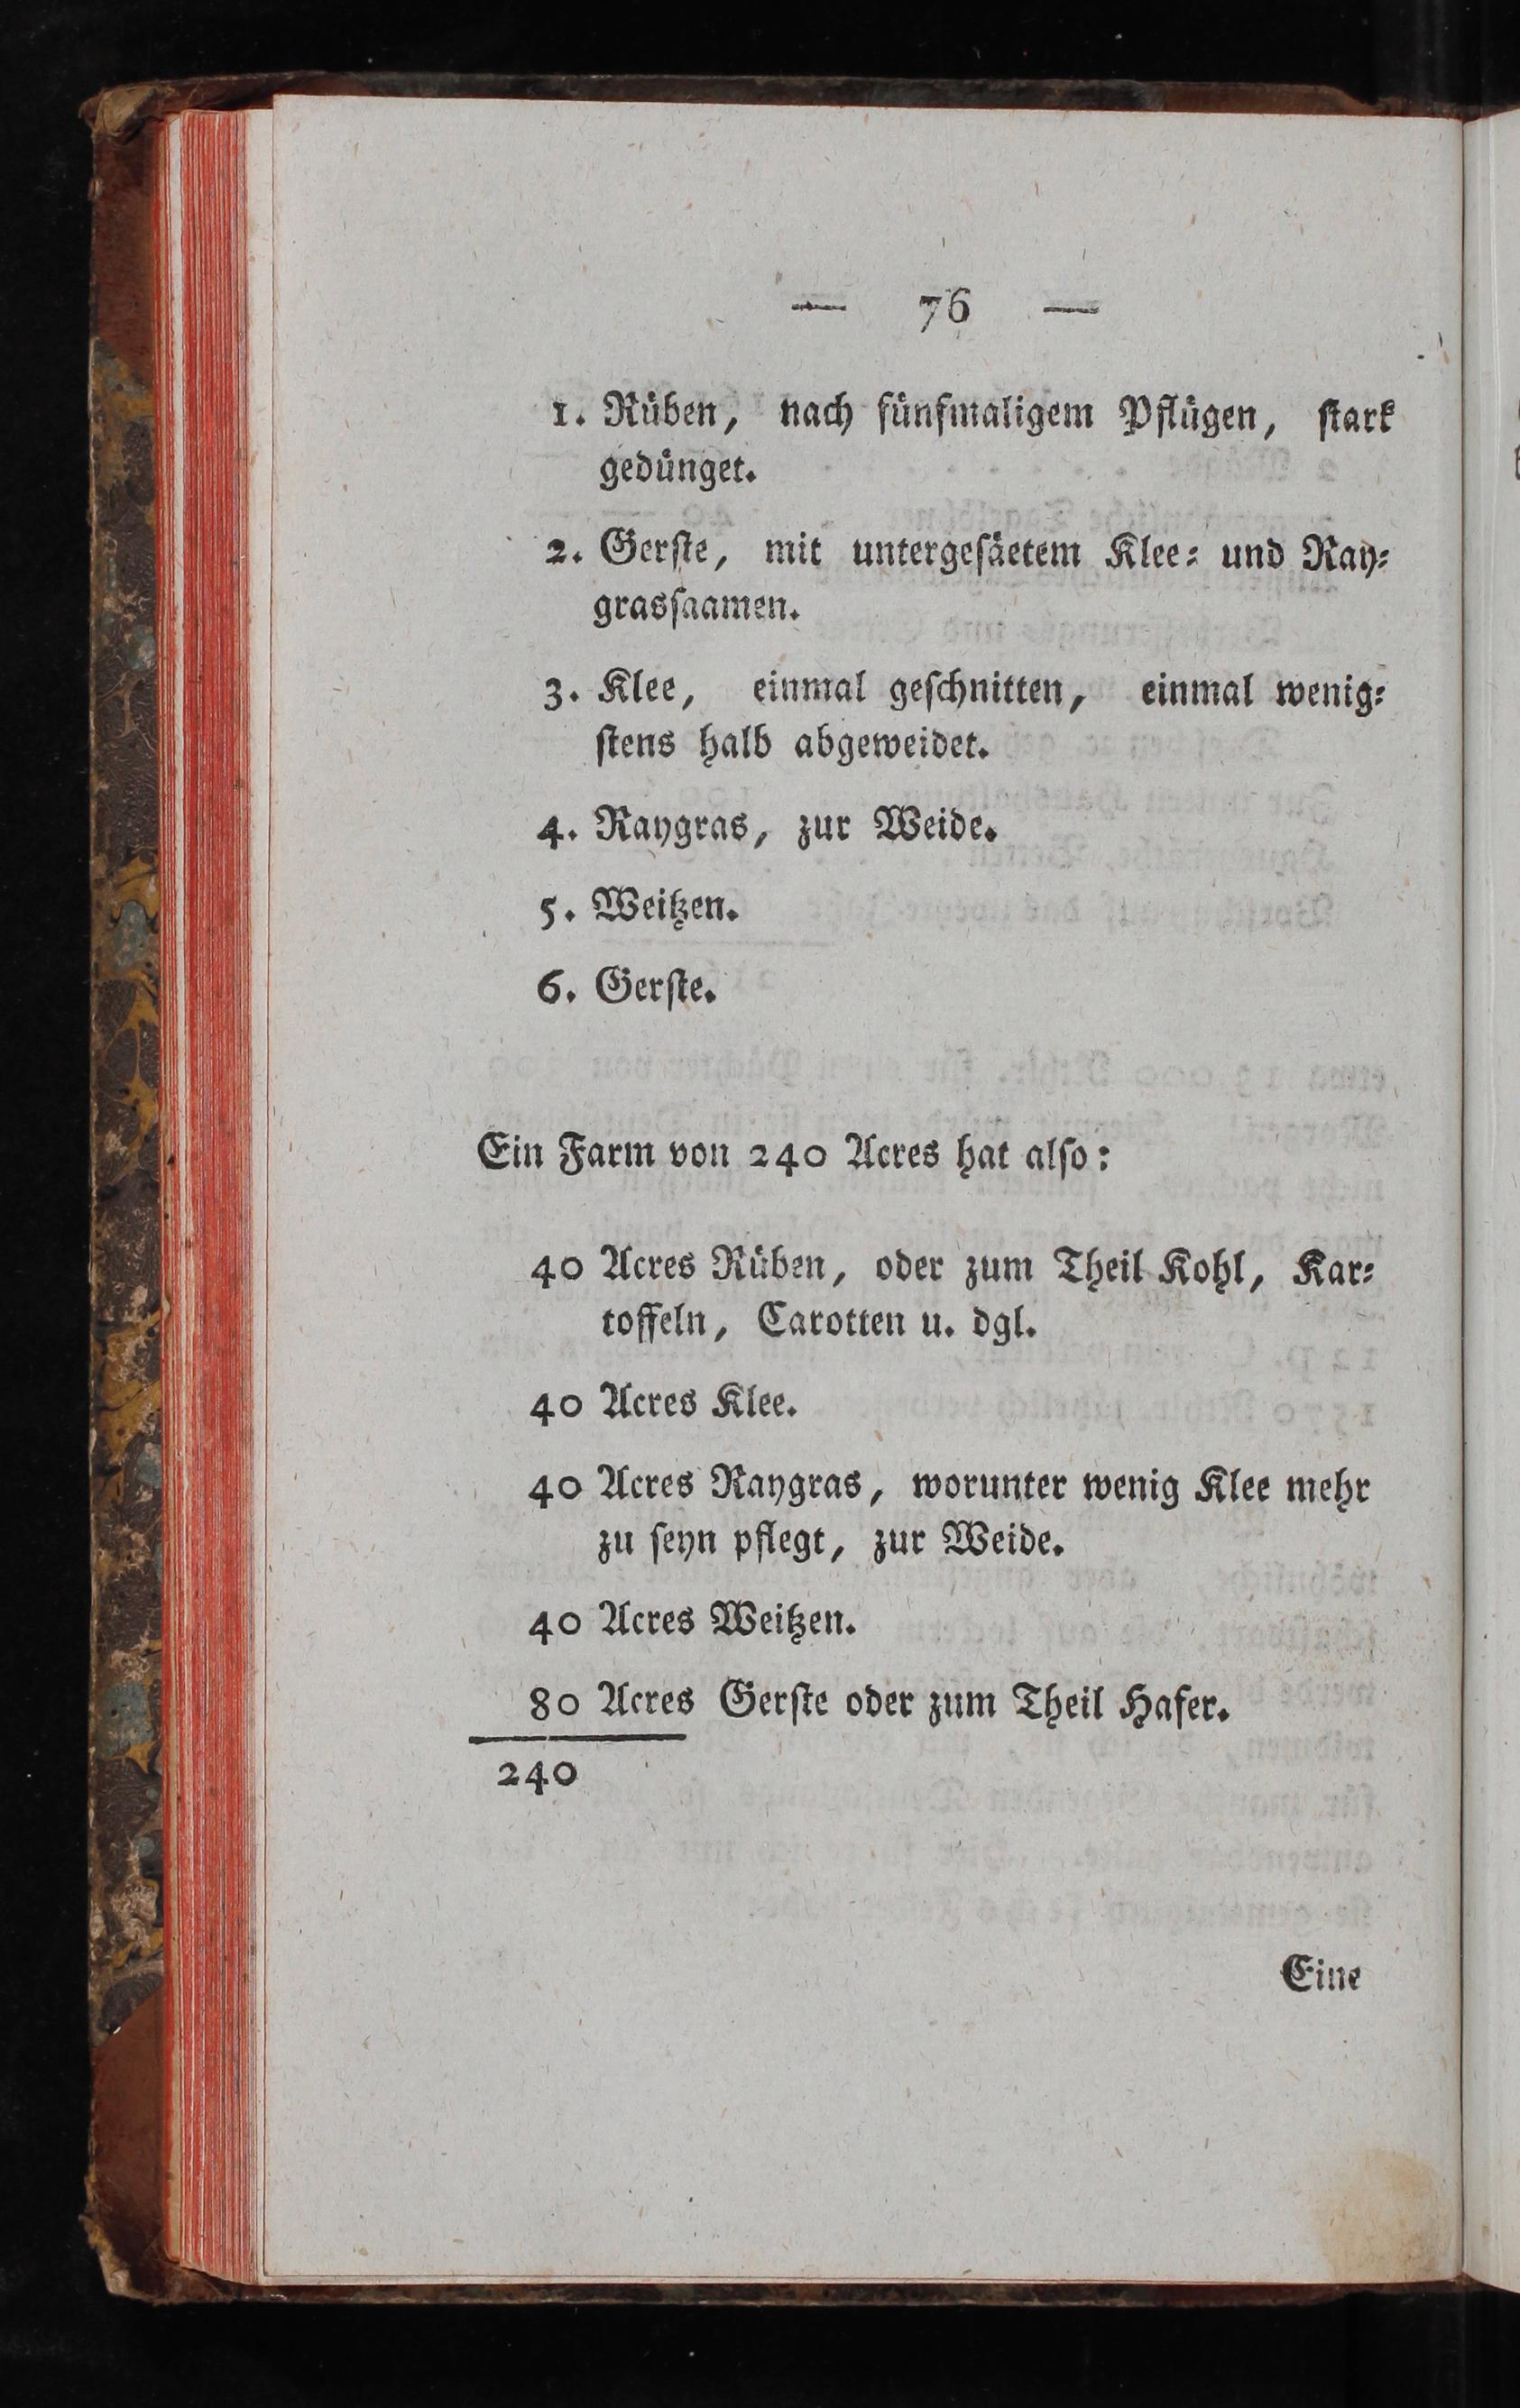 — 76 —
1. Rüben, nach fünfmaligem Pflügen, ſtark
gedünget.
2. Gerſte, mit untergeſäetem Klee⸗ und Ray⸗
grasſaamen.
3. Klee, einmal geſchnitten, einmal wenig⸗
ſtens halb abgeweidet.
4. Raygras, zur Weide.
5. Weitzen.
6. Gerſte.
Ein Farm von 240 Acres hat alſo:
40 Acres Rüben, oder zum Theil Kohl, Kar⸗
toffeln, Carotten u. dgl.
40 Acres Klee.
40 Acres Raygras, worunter wenig Klee mehr
zu ſeyn pflegt, zur Weide.
40 Acres Weitzen.
80 Acres Gerſte oder zum Theil Hafer.
240
Eine